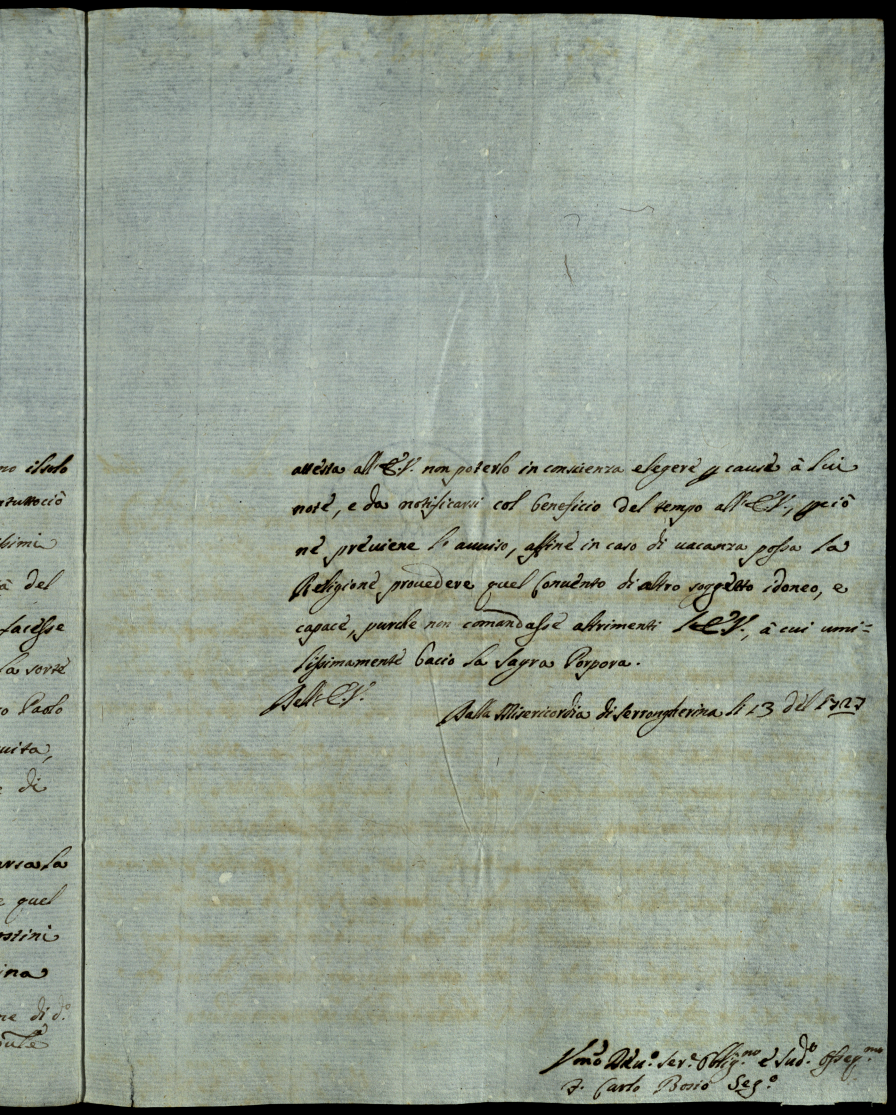 no il solo
ntuttociò
ssimi
à del
facesse
la sorte
o Paolo
uita,
e di
e quel
stini
ina
ne di d.º
attesta all'E.V. non poterlo in conscienza elegere p cause à lui
note, e da notificarsi col beneficio del tempo all'E.V., p ciò
ne previene l'auuiso, affine in caso di uacanza possa la
Religione prouedere quel Conuento di altro soggetto idoneo, e
capace, purche non comandasse altrimenti l'E.V., à cui umi=
lissimamente bacio la Sagra Porpora.
Dell'E.V.
Dalla Misericordia di Serrongherina li 13 del 1727
Vmo Diu.º Ser.e Oblig.mo e Sud.º Osseq.mo
F. Carlo Bosio Seg.º